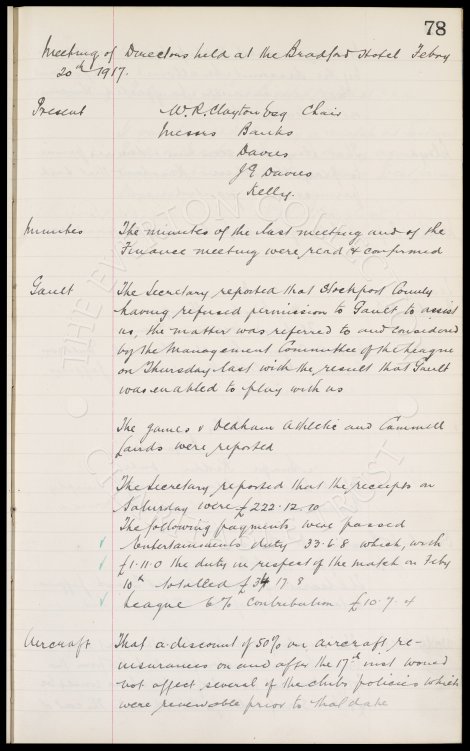 78
Meeting of Directors held at the Bradford Hotel Febry
20th 1917.
Present W. R. Clayton Esq Chair
Messrs Banks
Davies
J E Davies
Kelly.
Minutes The minutes of the last meeting and of the
Finance meeting were read & confirmed
Gault The Secretary reported that Stockport County
having refused permission to Gault to assist
us, the matter was referred to and considered
by the Management Committee of the League
on Thursday last with the result that Gault
was enabled to play with us
The games v Oldham Athletic and Cammell
Lairds were reported
The Secretary reported that the receipts on
Saturday were £222.12.10
The following payments were passed
Entertainments duty 33.6.8 which, with
£1.11.0 the duty in respect of the match on Feby
10th totalled £34 17.8
League 6% contribution £10.7.4
Aircraft That a discount of 50% on aircraft re-
insurances on and after the 17th inst would
not affect several of the clubs policies which
were renewable prior to that date
THE EVERTON COLLECTION
TRUST